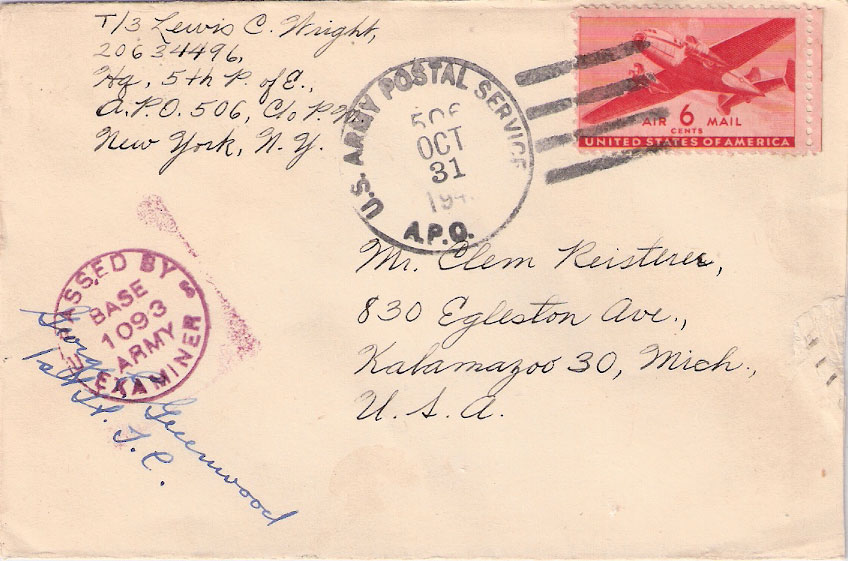 T/3 Lewis C. Wright,
20634496,
Hq. 5th P. of E.,
A.P.O. 506, C/o P.M.
New York, N.Y.
U.S. ARMY POSTAL SERVICE
506
OCT
31
194
A.P.O.
AIR 6 MAIL
CENTS
UNITED STATES OF AMERICA
Mr. Clem Reisterer,
830 Egleston Ave.,
Kalamazoo 30, Mich.,
U.S.A.
PASSED BY
BASE
1093
ARMY
EXAMINER
George Greenwood
1st Lt. T.C.